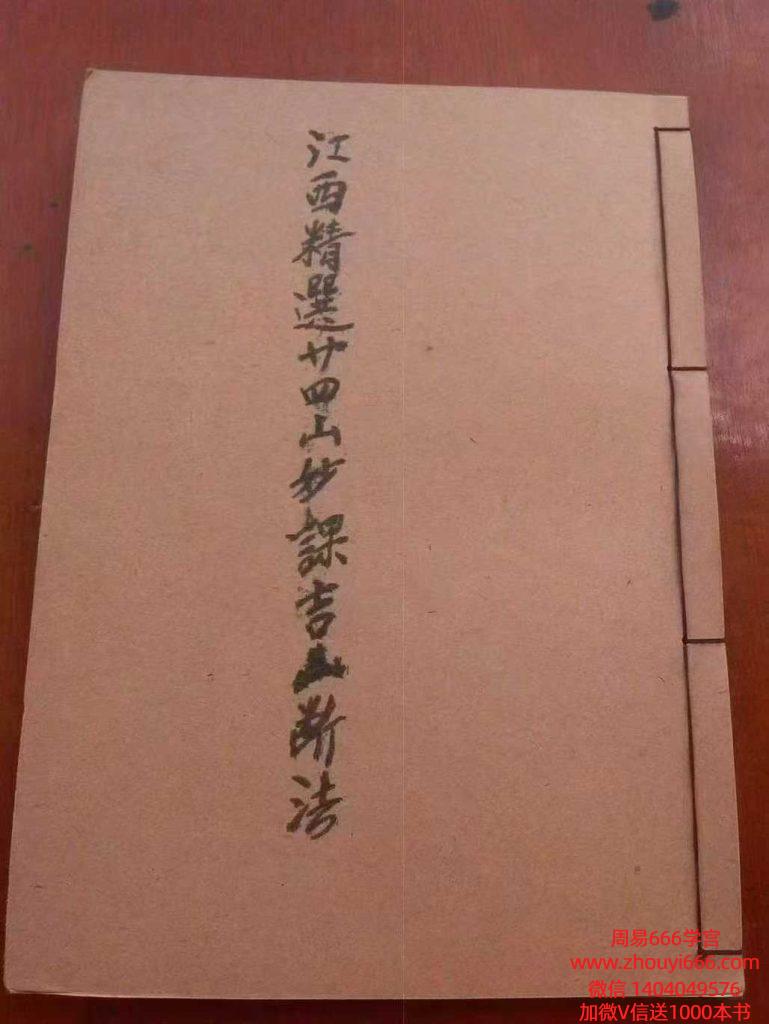 江西精選廿四山妙課吉凶断法
周易666学宫
www.zhouyi666.com
微信 1404049576
加微V信送1000本书